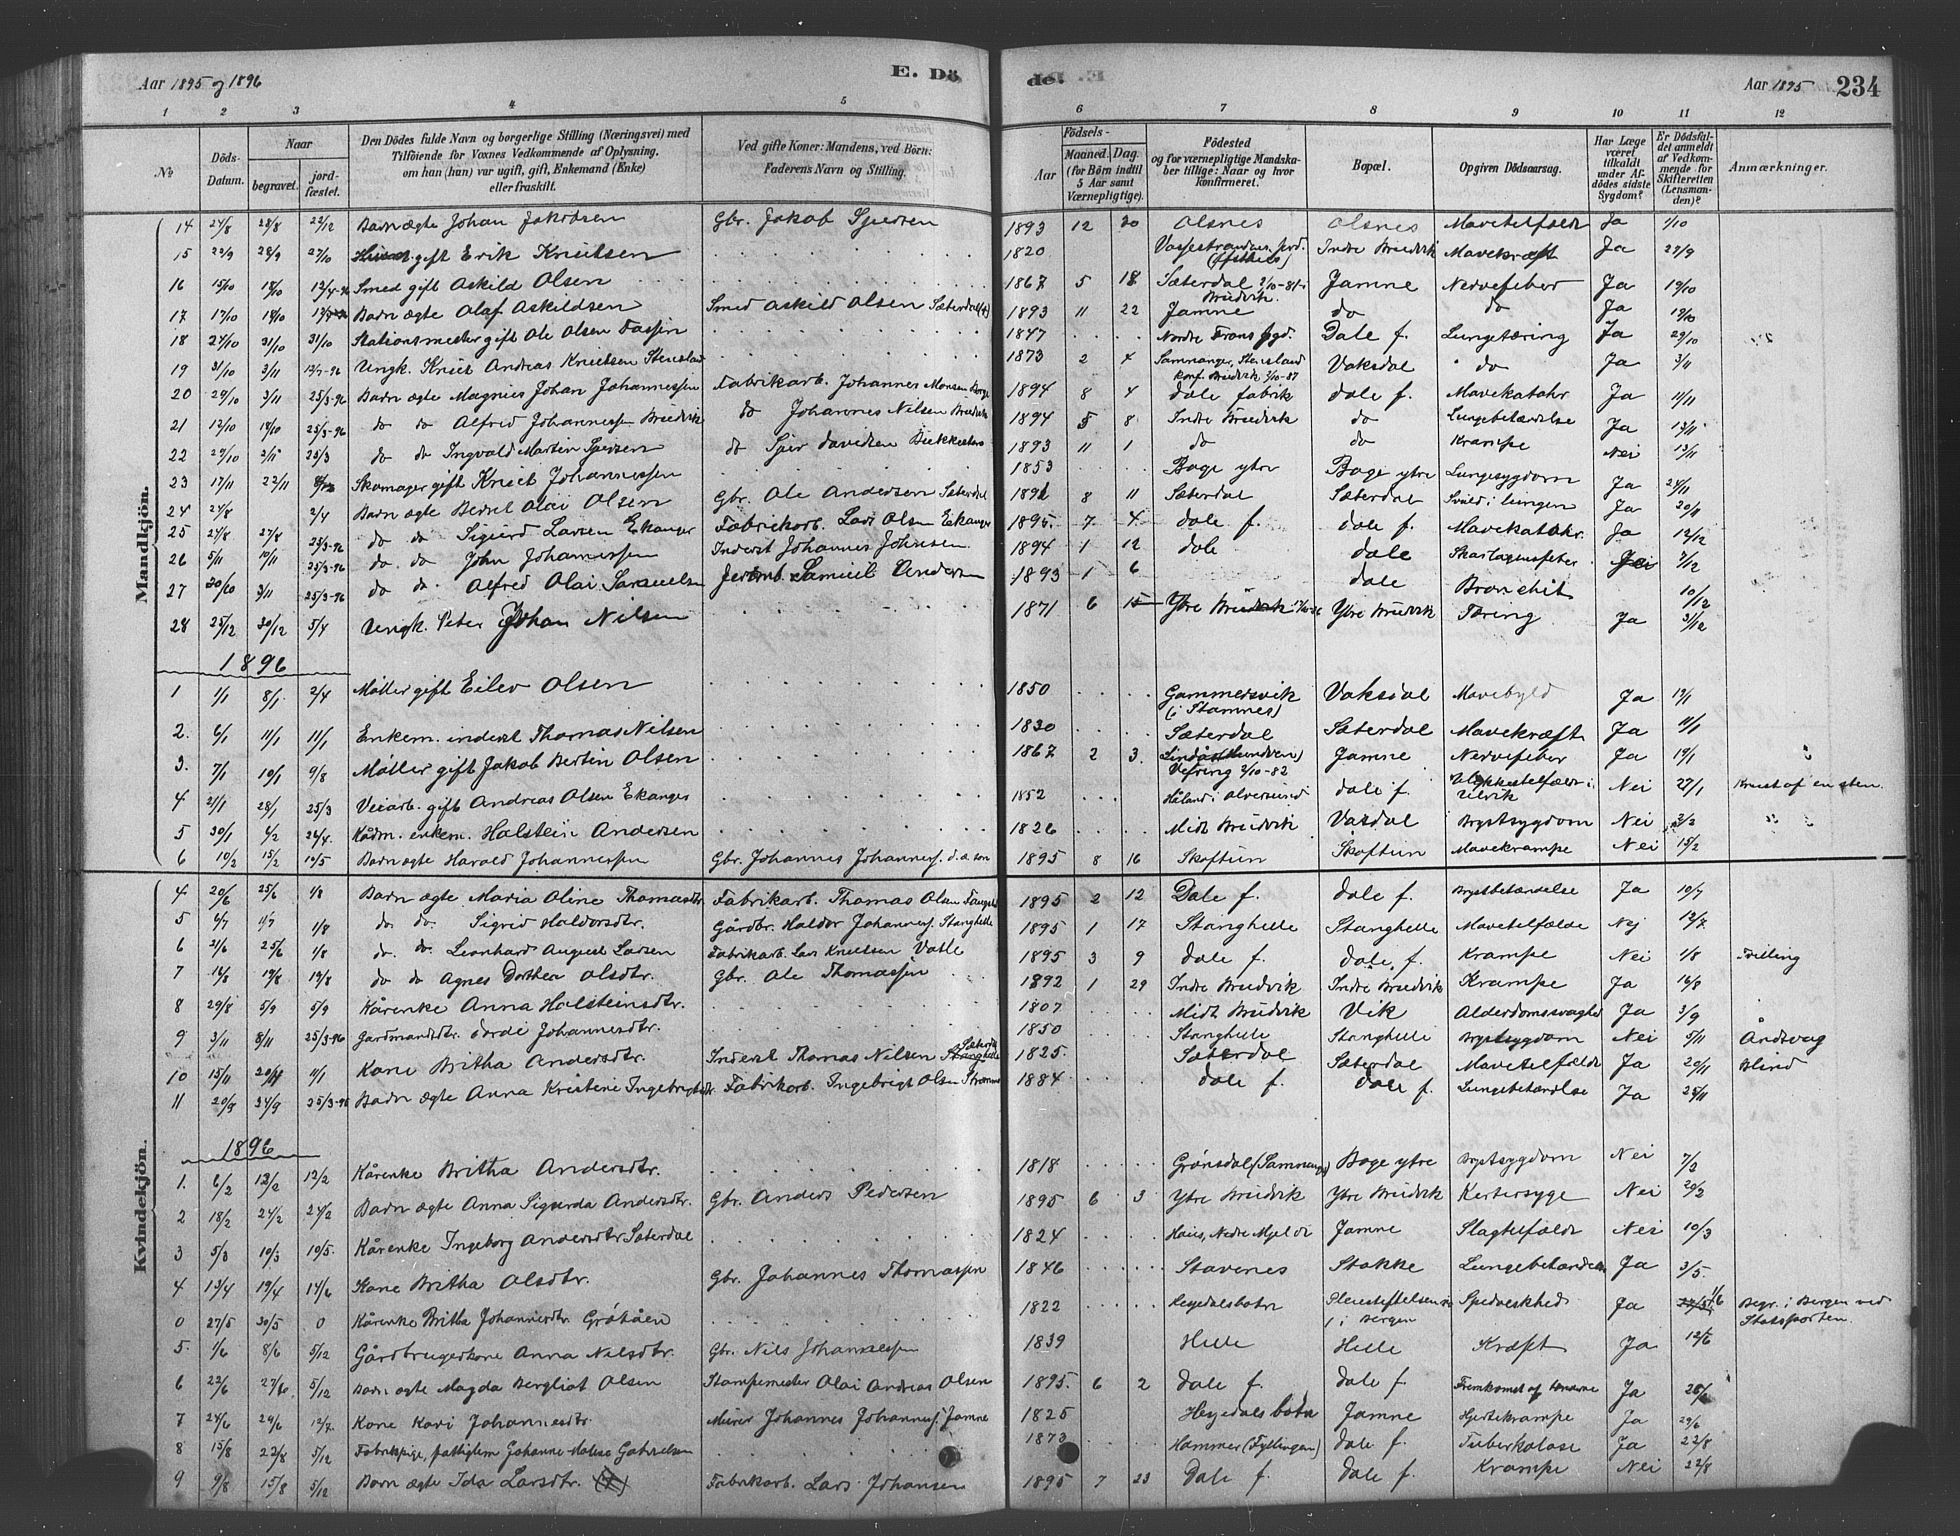 Aar 1895 og 1896 E. Dö de. Aar 1895 234
1 2 3 4 5 6 7 8 9 10 11 12
No Döds-Datum. Naar begravet. jord-fæstet. Den Dödes fulde Navn og borgerlige Stilling (Næringsvei) med Tilföiende for Voxnes Vedkommende af Oplysning, om han (hun) var ugift, gift, Enkemand (Enke) eller fraskilt. Ved gifte Koner: Mandens, ved Börn: Faderens Navn og Stilling. Födsels- Aar Maaned. Dag. (for Börn indtil 5 Aar samt Værnepligtige). Födested og for værnepligtige Mandska-ber tillige: Naar og hvor konfirmeret. Bopæl. Opgiven Dödsaarsag. Har Læge været tilkaldt under Af-dödes sidste Sygdom? Er Dödsfal-det anmeldt af Vedkom-mende for Skifteretten (Lensman-den)? Anmærkninger.
Mandkjön.
14 24/8 28/8 22/12 Barn ægte Johan Jakobsen Gbr. Jakob Sjursen 1893 12 20 Olsnes Olsnes Mavetilfælde Ja 1/10
15 22/9 28/9 27/10 gift Erik Knutsen 1820 Vossestranden Indre Bruvik Mavekræft Ja 27/9
16 15/10 18/10 12/4-96 Smed gift Askild Olsen 1867 5 18 Sæterdal Bruvik Jamne Nervefeber Ja 19/10
17 17/10 18/10 Barn ægte Olaf Askildsen Smed Askild Olsen Sæterdal 1893 11 22 Jamne do do Ja 19/10
18 24/10 31/10 31/10 Stationsmester gift Ole Olsen Fossen 1847 Nordre Dale f. Lungetæring Ja 29/10
19 31/10 3/11 Ungk. Knut Andreas Knutsen Stensland 1873 2 4 Samnanger, Stensland konf. Bruvik Vaksdal do Ja 3/11
20 29/10 3/11 25/3-96 Barn ægte Magnus Johan Johannessen Fabrikarb. Johannes Monsen 1894 8 4 Dale fabrik Dale f. Mavekatahr Ja 11/11
21 12/10 18/10 25/3-96 do do Alfred Johannessen Bruvik do Johannes Nilsen Bruvik 1894 5 8 Indre Bruvik do Lungebetændelse Ja 13/11
22 29/10 2/11 25/3 do do Ingvald Martin do Sjur Davidsen 1893 11 1 do do Krampe Nei 13/11
23 17/11 22/11 Skomager gift Knut Johannessen 1853 Boge ytre Boge ytre Lungesygdom Ja 24/11
24 24/8 2/4 Barn ægte Olai Olsen Gbr. Ole Andersen Sæterdal 8 11 Sæterdal Sæterdal Svuld i lungen Ja 20/11
25 24/8 27/8 25/3-96 do do Sigurd Larsen Ekanger Fabrikarb. Lars Olsen Ekanger 1895. 7 4 Dale f. Dale f. Mavekatahr. Ja 12/12
26 5/11 10/11 25/3-96 do do John Johannessen Inderst Johannes Johnsen 1894 1 12 Dale Dale 7/12
27 30/10 3/11 25/3-96 do do Alfred Olai Samuelsen Samuel Andersen 1893 1 6 Dale Bronchit 10/12
28 25/12 30/12 5/4 Ungk. Peter Johan Nilsen 1871 6 15 Ytre Bruvik Ytre Bruvik Tæring Ja 31/12
1896
1 1/1 8/1 2/4 Møller gift Eilev Olsen 1850 Gammersvik (i Stamnes) Vaksdal Mavebyld Ja 12/1
2. 6/1 11/1 11/1 Enkem. inderst Thomas Nilsen 1830 Sæterdal Sæterdal Mavekræft Ja 11/1
3. 7/1 10/1 9/8 Møller gift Jakob Bertin Olsen 1867 2 3. Jamne Nervefeber Ja 19/1
4 21/1 28/1 25/3 Veiarb. gift Andreas Olsen Ekanger 1852 Håland i Alversund Dale f. Ulykkestilfælde i Ulvik Nei 27/1 Knust af en sten.
5 30/1 4/2 26/4. Kårm. enkem. Holstein Andersen 1826 Midt Bruvik Vaksdal Brystsygdom Nei 3/2
6 10/2 15/2 10/5 Barn ægte Harald Johannessen Gbr. Johannes Johanness. d.a. søn 1895 8 16 Skoftun Skoftun Mavekrampe Nei 15/2
Kvindekjön.
4 20/6 25/6 1/8 Barn ægte Maria Oline Thomasdtr. Fabrikarb. Thomas Olsen 1895 2 12 Dale f. Dale f. Brystbetændelse Ja 10/7
5 6/7 1/8 do do Sigrid Haldorsdtr. Gårdbr. Haldor Johanness. Stanghelle 1895 1 17 Stanghelle Stanghelle Mavetilfælde Nej 12/7
6 21/6 25/6 1/8 do do Leonhard August Larsen Fabrikarb. Lars Knutsen Vatle 1895 3 9 Dale f. Dale f. Krampe Nei 1/8 Tvilling
7 16/8 19/8 19/8 do do Agnes Dorthea Olsdtr. Gbr. Ole Thomassen 1892 1 29 Indre Bruvik Indre Bruvik Krampe Ja 16/8
8 29/8 5/9 5/9 Kårenke Anna Holsteinsdtr. 1807 Midt Bruvik Vik Alderdomssvaghed Ja 3/9
9 3/11 8/11 25/3-96 Gardmandsdtr. Dordi Johannesdtr. 1850 Stanghelle Stanghelle Brystsygdom Nei 5/11 Åndsvag
10 15/11 20/11 11/1 Kone Britha Andersdtr. Inderst Thomas Nilsen Sæterdal 1825. Sæterdal Sæterdal Mavetilfælde Ja 20/11 Blind
11 20/9 24/9 25/3-96 Barn ægte Anna Kristine Ingebrigtsdtr. Fabrikarb. Ingebrigt Olsen 1884 Dale f. Dale f. Lungebetændelse Ja 25/11
1896
1. 6/2 12/2 12/2 Kårenke Britha Andersdtr. 1818 Grønsdal (Samnanger) Boge ytre Brystsygdom Nei 7/2
2 18/2 24/2 24/2 Barn ægte Anna Sigurda Andersdtr. Gbr. Anders Pedersen 1895 6 3 Ytre Bruvik Ytre Bruvik Kertersyge Nei 20/2
3 5/3 10/3 10/5. Kårenke Ingeborg Andersdtr Sæterdal 1824 Haus, Nedre Mjelde Jamne Slagtilfælde Nei 10/3
4 13/4 19/4 14/6 Kone Britha Olsdtr. Gbr. Johannes Thomassen 1846 Stavenes Stokke Lungebetændelse Ja 3/5.
0 27/5 30/5 0 Kårenke Britha Johannesdtr. 1822 Heyedalsbotn Pleiestiftelsen i Bergen Spedalskhed Ja 1/6 Begr. i Bergen ved Stadsporten.
5. 1/6 8/6 5/12 Gårdbrugerkone Anna Nilsdtr. Gbr. Nils Johannessen 1839 Helle Helle Kræft Ja 12/6
6 22/6 27/6 5/12 Barn ægte Magda Bergliot Olsen Stampemester Olai Andreas Olsen 1895. 6 2 Dale f. Dale f. Ja
7 24/6 29/6 12/7. Kone Kari Johannesdtr. Murer Johannes Johanness. Jamne 1825 Heyedalsbotn Jamne Hjertekrampe Ja 29/6
8 15/8 22/8 5/12 Fabrikpige, fattiglem Johanne Malene Gabrielsen 1873 Hammer (Fyllingen) Dale f. Tuberkulose Ja 22/8
9 9/8 15/8 5/12 Barn ægte Ida Larsdtr. Fabrikarb. Lars Johansen 1895 7 23 Dale f. Dale f. Krampe Nei 22/8